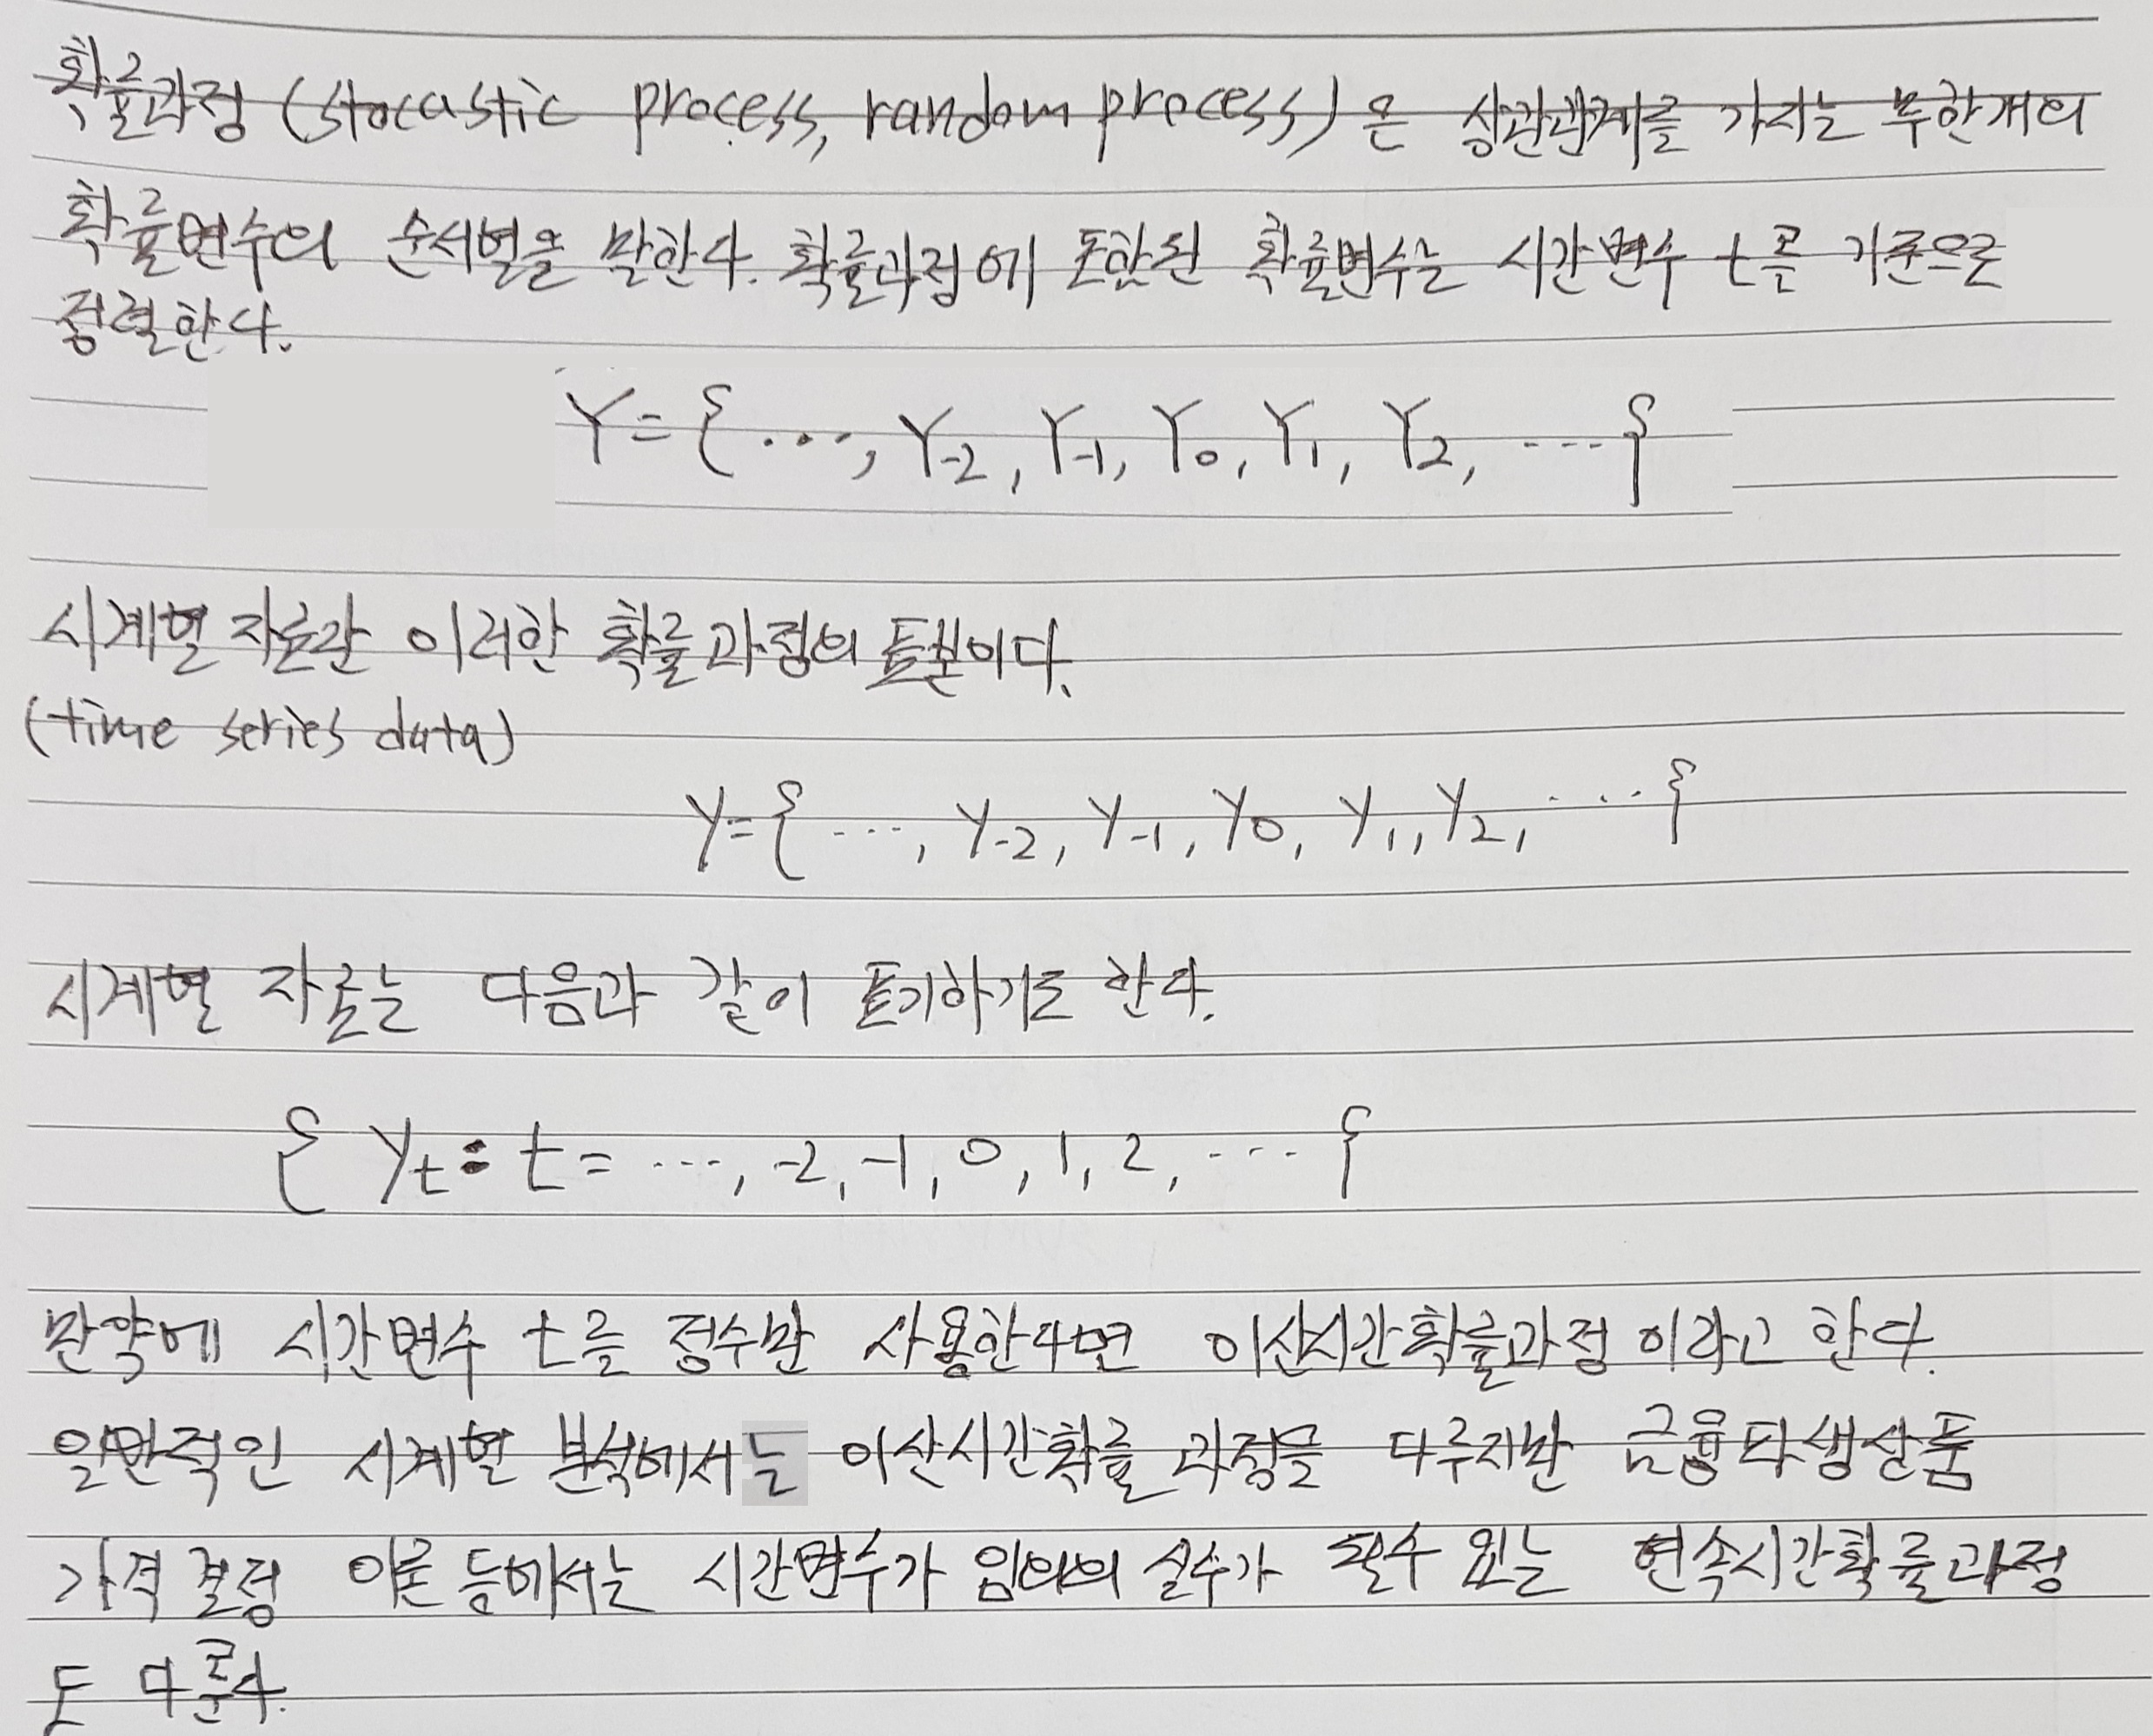 확률과정 (stocastic process, random process) 은 상관관계를 가지는 무한개의
확률변수의 순서열을 말한다. 확률과정에 포함된 확률변수는 시간변수 t를 기준으로
정렬한다.
Y = { ..., Y-2, Y-1, Y0, Y1, Y2, ... }
시계열 자료란 이러한 확률과정의 표본이다.
(time series data)
y = { ..., y-2, y-1, y0, y1, y2, ... }
시계열 자료는 다음과 같이 표기하기도 한다.
{ yt : t = ..., -2, -1, 0, 1, 2, ... }
만약에 시간변수 t를 정수만 사용한다면 이산시간확률과정 이라고 한다.
일반적인 시계열 분석에서는 이산시간확률 과정을 다루지만 금융파생상품
가격 결정 이론 등에서는 시간변수가 임의의 실수가 될수 있는 연속시간확률과정
도 다룬다.